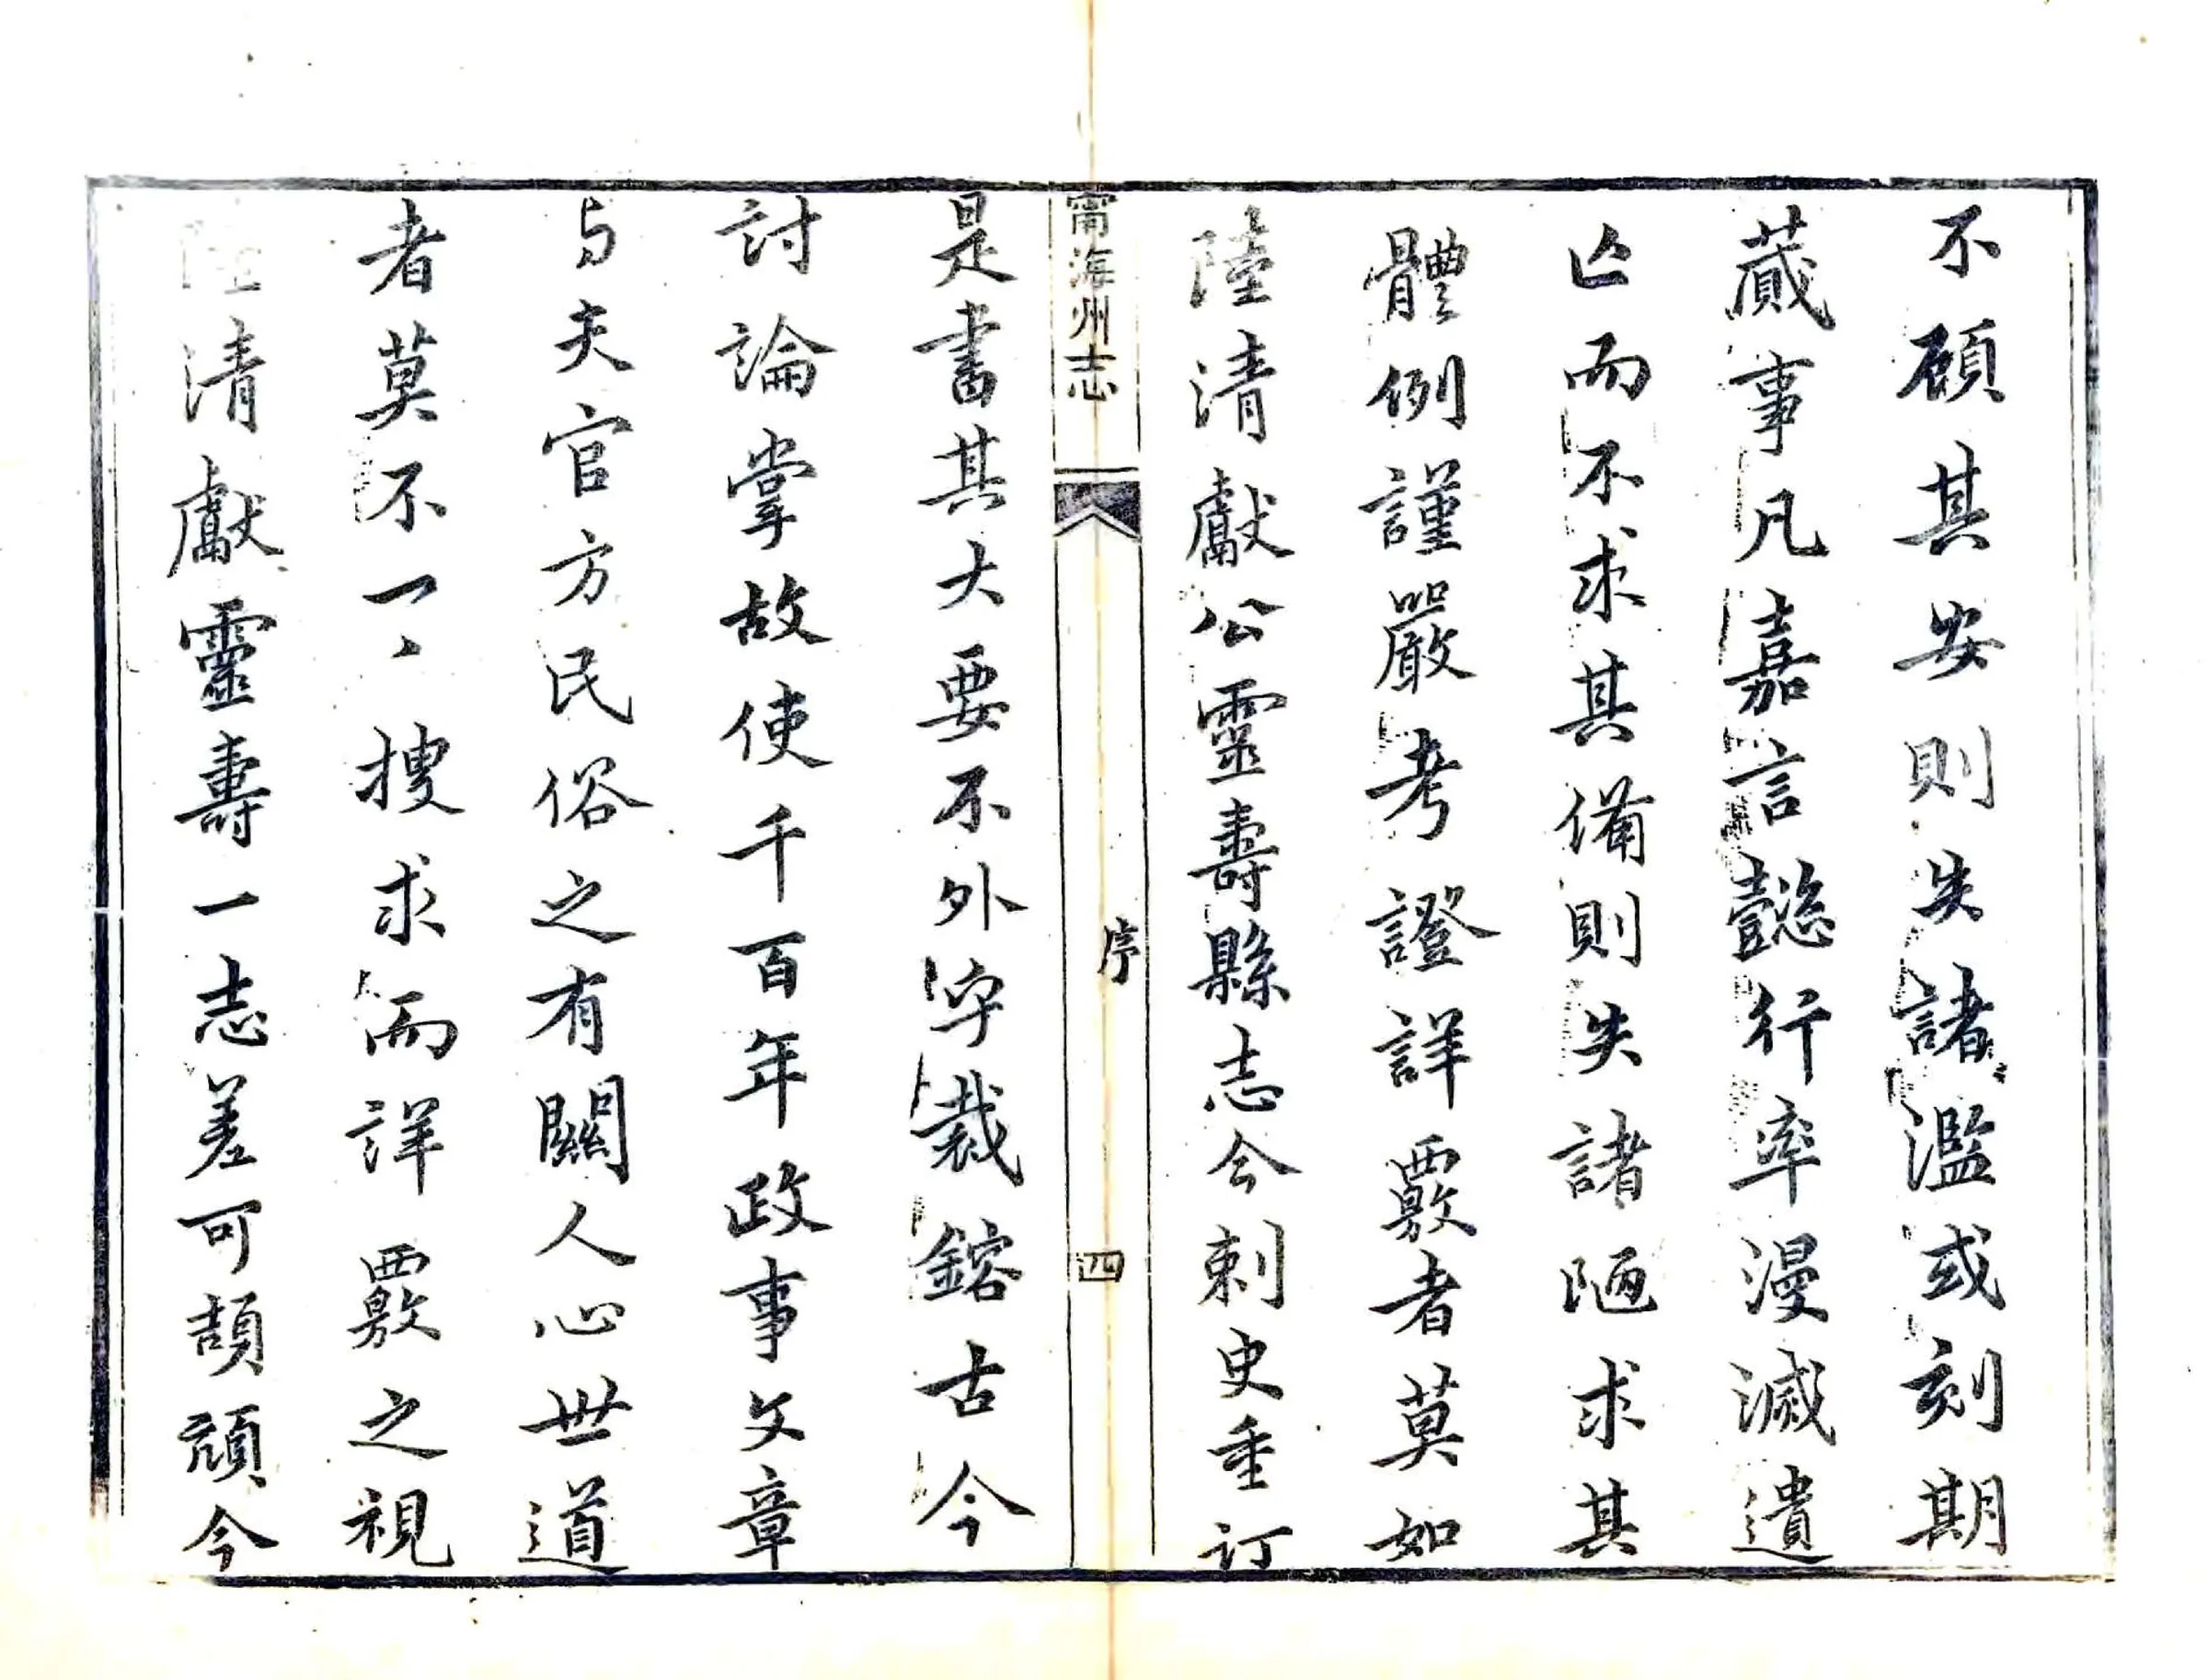 不顧其安則失諸濫或刻期
蕆事凡嘉言懿行率漫滅遺
亡而不求其備則失諸陋求其
體例謹嚴考證詳覈者莫如
陸清獻公靈壽縣志今刺史重訂
甯海州志
序
四
是書其大要不外字裁鎔古今
討論掌故使千百年政事文章
与夫官方民俗之有關人心世道
者莫不一、搜求而詳覈之視
陸清獻靈壽一志差可頡頏今